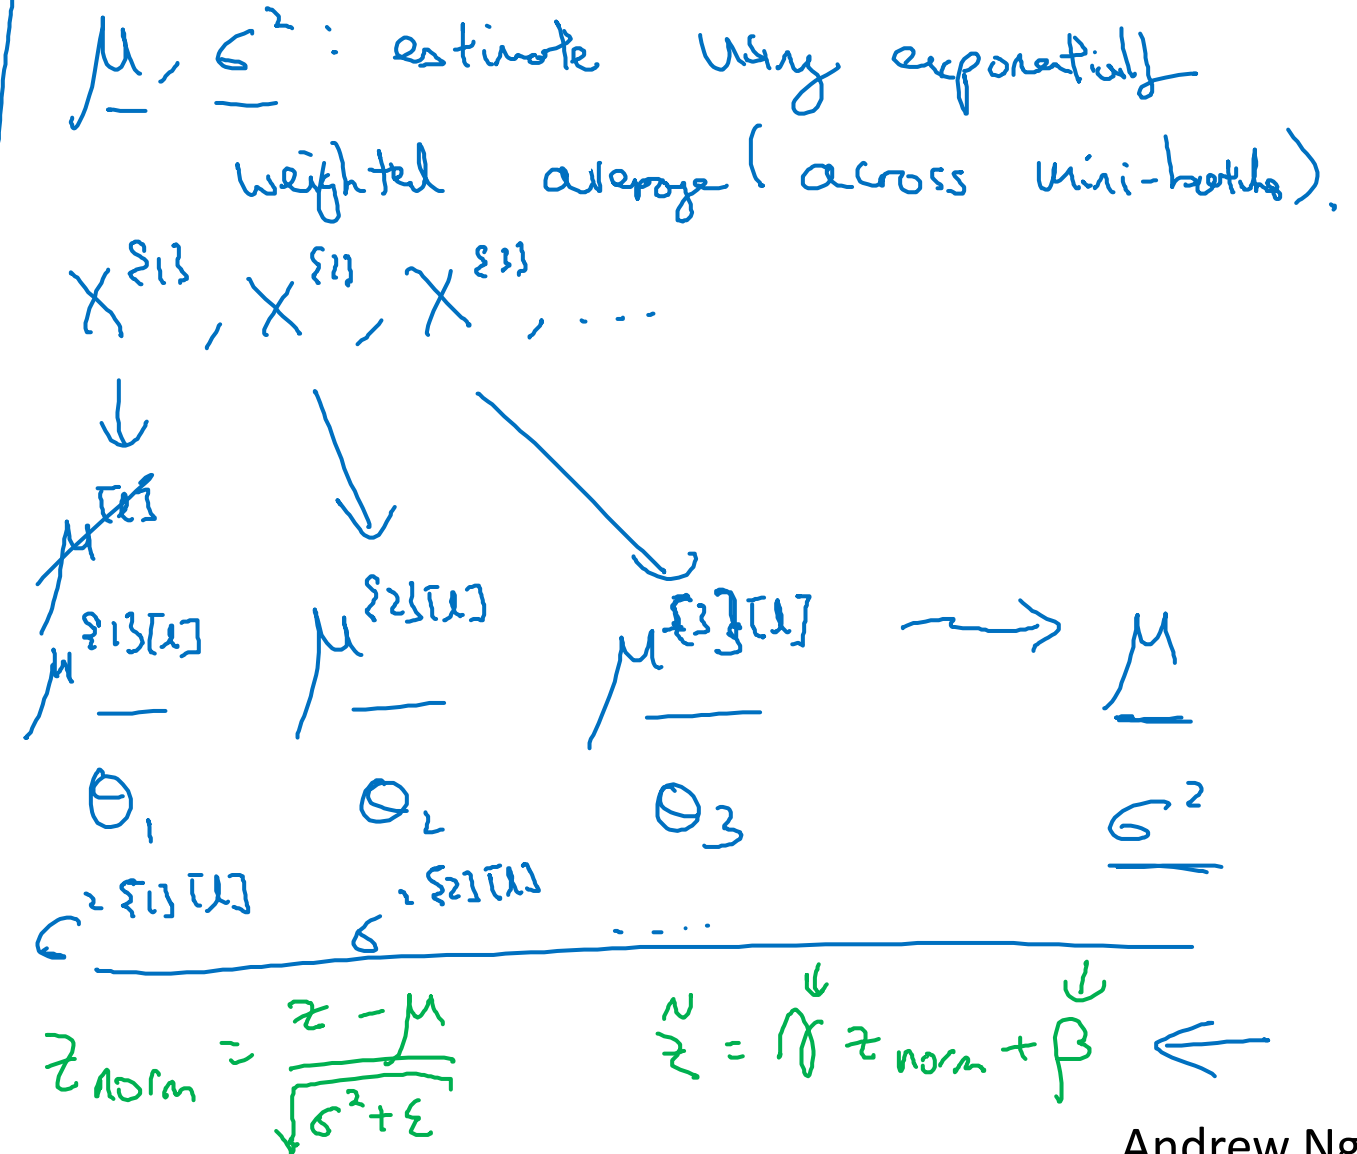 μ, σ² : estimate using exponentially
weighted average (across mini-batches).
X^{1}, X^{2}, X^{3}, ....
μ^[l]
μ^{1}[l] μ^{2}[l] μ^{3}[l] → μ
θ₁ θ₂ θ₃ σ²
σ^2{1}[l] σ^2{2}[l] ....
z_norm = (z - μ) / √(σ² + ε) z̃ = γ z_norm + β ←
Andrew Ng